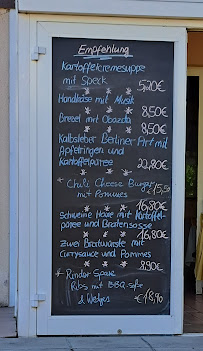 Empfehlung
Kartoffelcremesuppe
mit Speck 5,20€
* * *
Handkäse mit Musik
* * * 8,50€
Brezel mit Obazda
* * * 8,50€
Kalbsleber Berliner-Art mit
Apfelringen und
Kartoffelpüree 22,80€
* * *
* Chili Cheese Burger
mit Pommes € 15,50
* * * 16,80€
Schweine mit Kartoffel-
püree und Bratensosse
* * * 16,80€
Zwei Bratwürste mit
Currysauce und Pommes
* * * 8,90€
* Rinder Spare
Ribs mit BBQ-Soße
& Wedges € 18,90